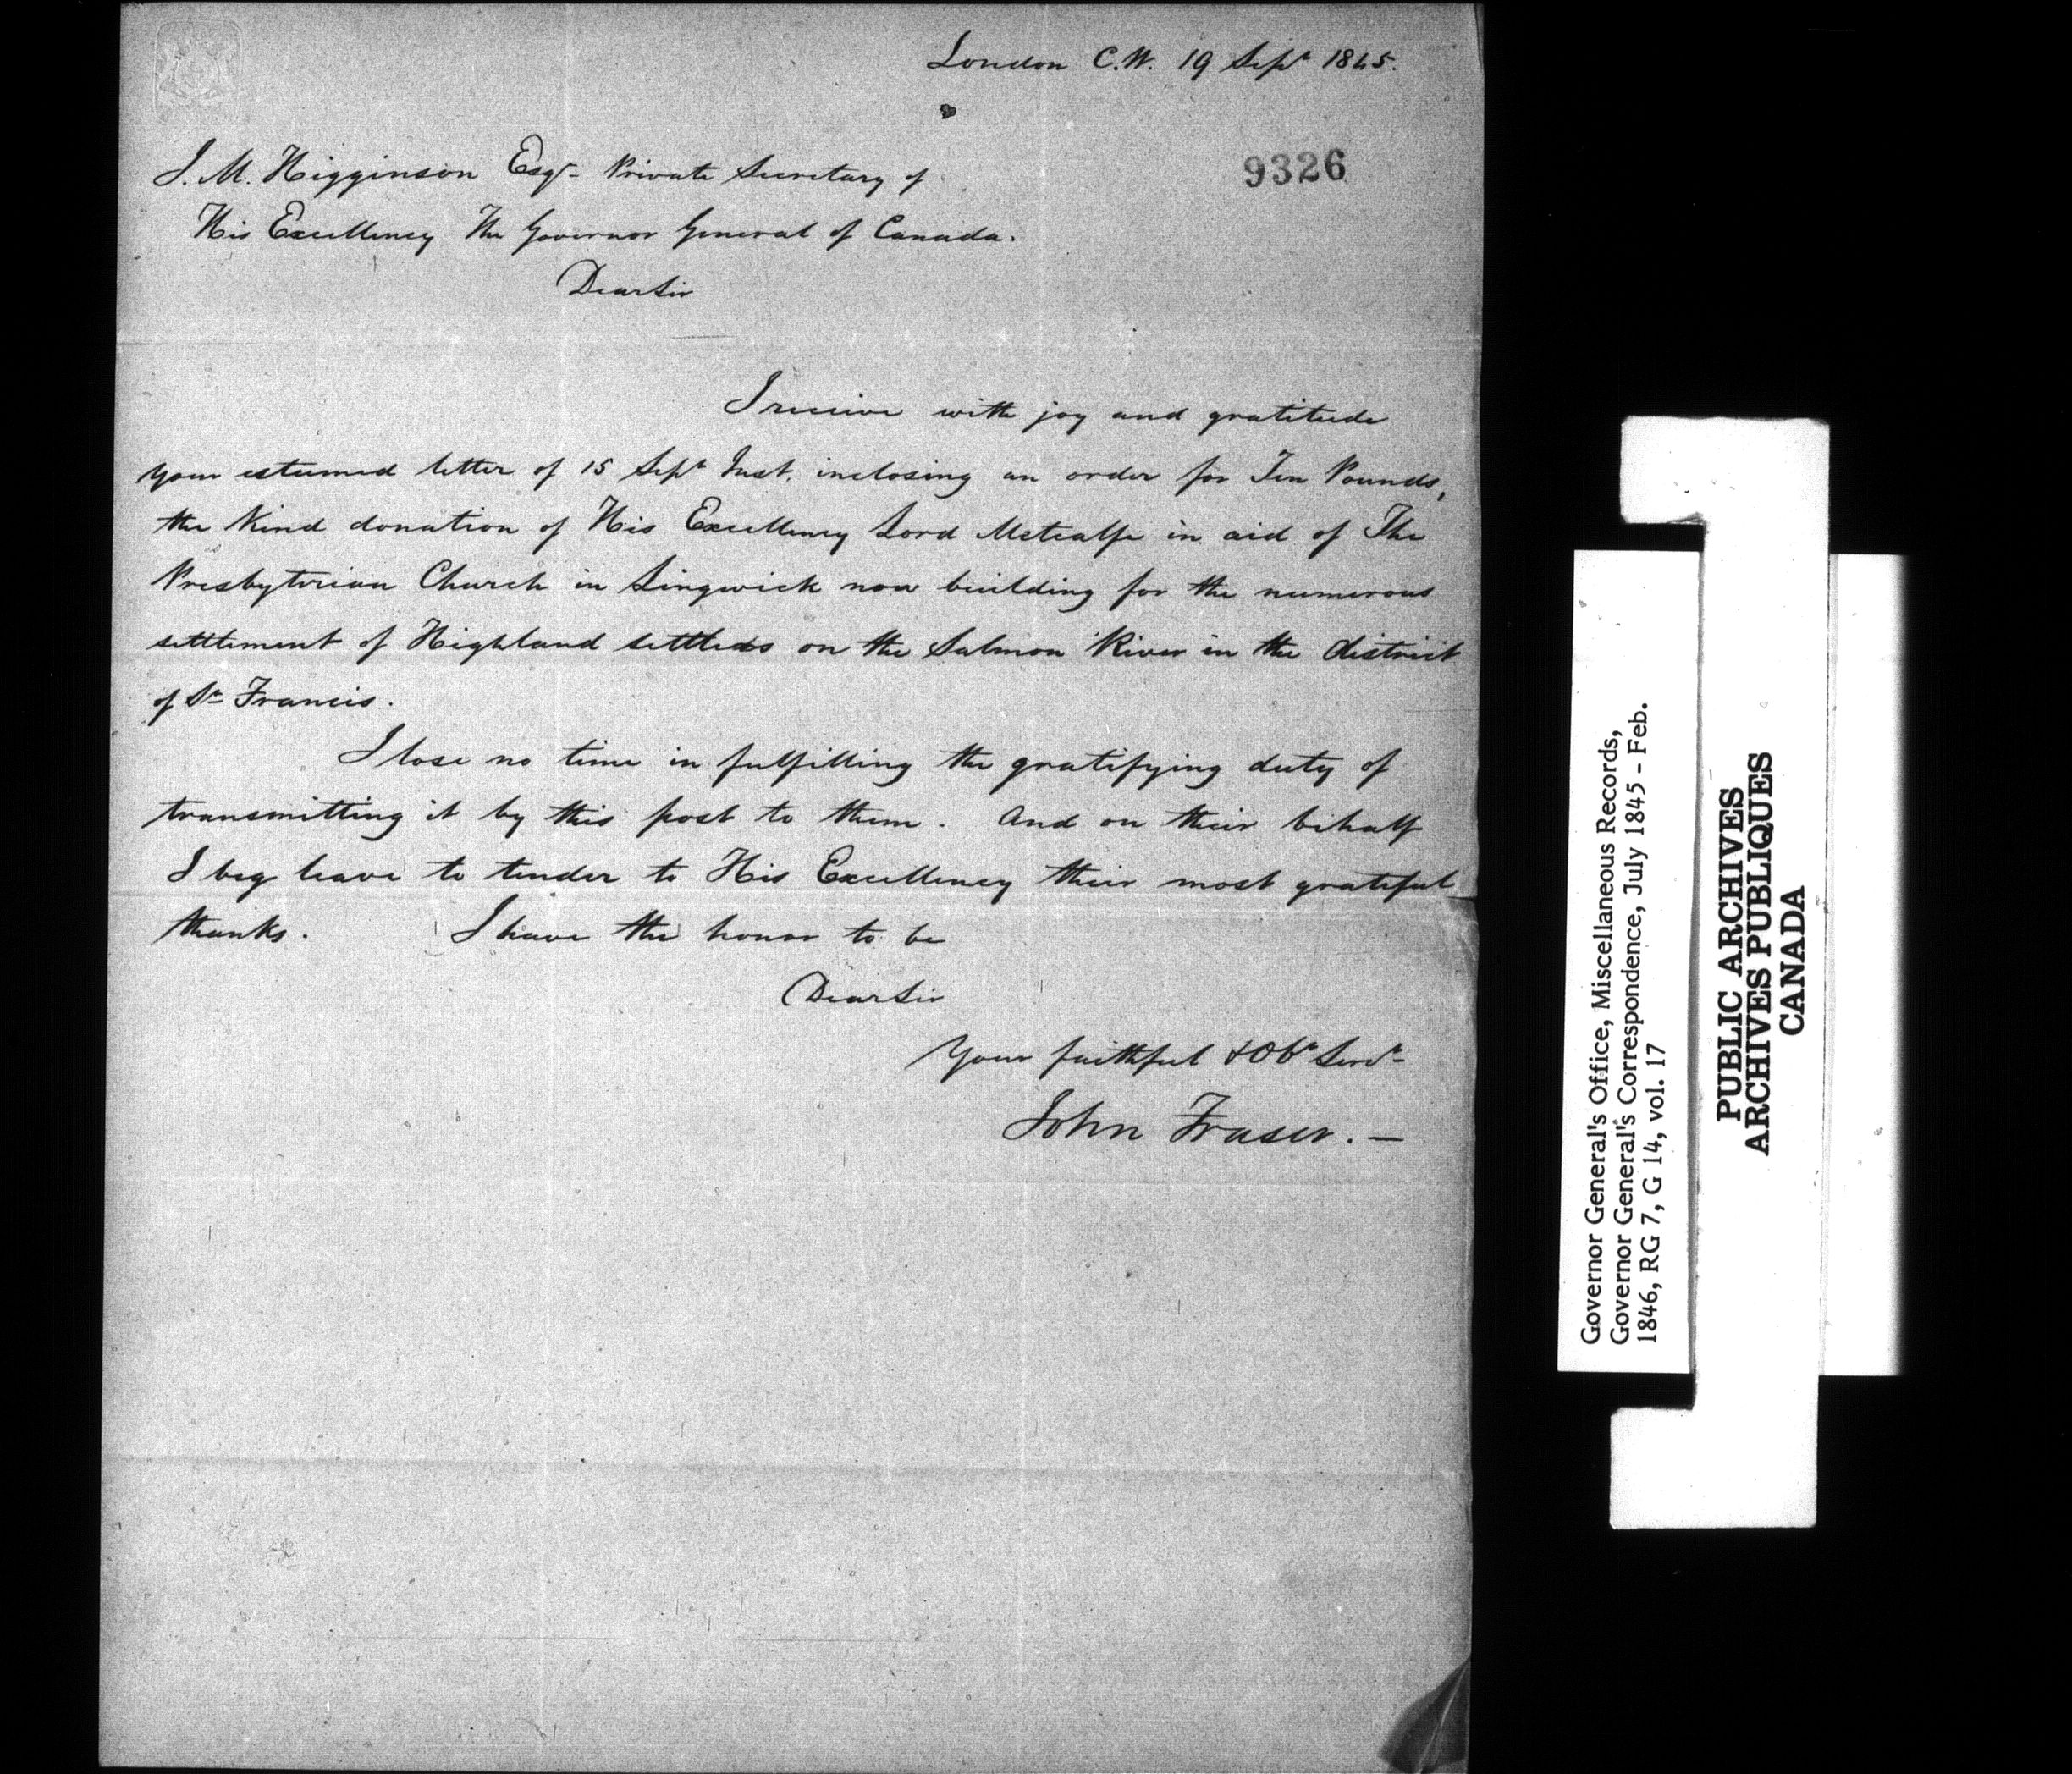 London C.W. 19 Sept 1845.
9326
J. M. Higginson Esqr - Private Secretary of
His Excellency The Governor General of Canada.
Dear Sir
I receive with joy and gratitude
your esteemed letter of 15 Sept Inst. inclosing an order for Ten Pounds,
the kind donation of His Excellency Lord Metcalfe in aid of The
Presbyterian Church in Lingwick now building for the numerous
settlement of Highland settlers on the Salmon River in the district
of St Francis.
I lose no time in fulfilling the gratifying duty of
transmitting it by this post to them. And on their behalf
I beg leave to tender to His Excellency their most grateful
thanks. I have the honor to be
Dear Sir
Your faithful & Obt Servt
John Fraser. —
Governor General's Office, Miscellaneous Records,
Governor General's Correspondence, July 1845 - Feb.
1846, RG 7, G 14, vol. 17
PUBLIC ARCHIVES
ARCHIVES PUBLIQUES
CANADA